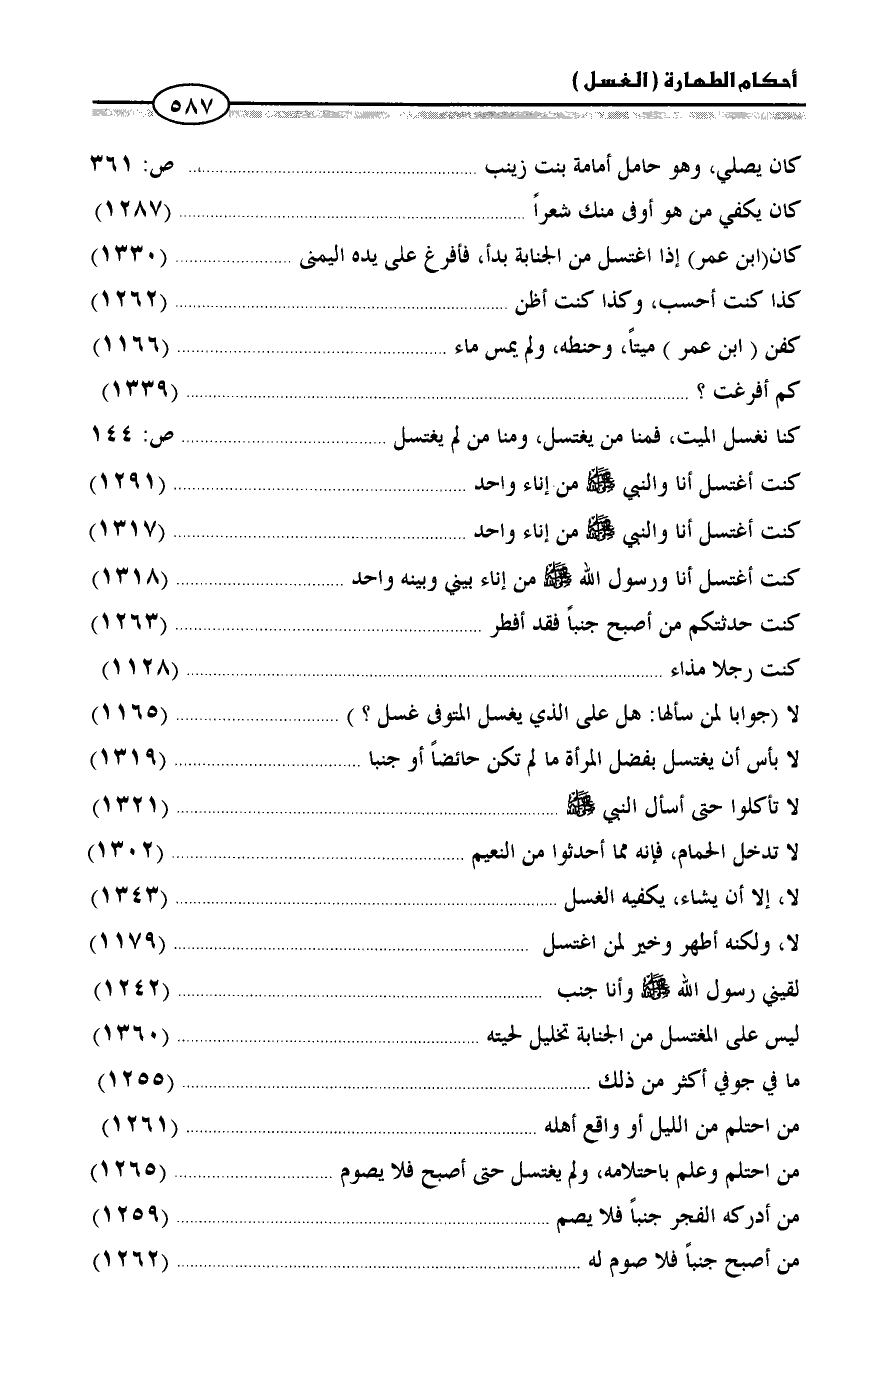 أحكام الطهارة (الغسل)
٥٨٧
كان يصلي، وهو حامل أمامة بنت زينب ........ ص: ٣٦١
كان يكفي من هو أوفى منك شعراً ........ (١٢٨٧)
كان(ابن عمر) إذا اغتسل من الجنابة بدأ، فأفرغ على يده اليمنى ........ (١٣٣٠)
كذا كنت أحسب، وكذا كنت أظن ........ (١٢٦٢)
كفن ( ابن عمر ) ميتاً، وحنطه، ولم يمس ماء ........ (١١٦٦)
كم أفرغت ؟ ........ (١٣٣٩)
كنا نغسل الميت، فمنا من يغتسل، ومنا من لم يغتسل ........ ص: ١٤٤
كنت أغتسل أنا والنبي ﷺ من إناء واحد ........ (١٢٩١)
كنت أغتسل أنا والنبي ﷺ من إناء واحد ........ (١٣١٧)
كنت أغتسل أنا ورسول الله ﷺ من إناء بيني وبينه واحد ........ (١٣١٨)
كنت حدثتكم من أصبح جنباً فقد أفطر ........ (١٢٦٣)
كنت رجلا مذاء ........ (١١٢٨)
لا (جوابا لمن سألها: هل على الذي يغسل المتوفى غسل ؟ ) ........ (١١٦٥)
لا بأس أن يغتسل بفضل المرأة ما لم تكن حائضاً أو جنبا ........ (١٣١٩)
لا تأكلوا حتى أسأل النبي ﷺ ........ (١٣٢١)
لا تدخل الحمام، فإنه مما أحدثوا من النعيم ........ (١٣٠٢)
لا، إلا أن يشاء، يكفيه الغسل ........ (١٣٤٣)
لا، ولكنه أطهر وخير لمن اغتسل ........ (١١٧٩)
لقيني رسول الله ﷺ وأنا جنب ........ (١٢٤٢)
ليس على المغتسل من الجنابة تخليل لحيته ........ (١٣٦٠)
ما في جوفي أكثر من ذلك ........ (١٢٥٥)
من احتلم من الليل أو واقع أهله ........ (١٢٦١)
من احتلم وعلم باحتلامه، ولم يغتسل حتى أصبح فلا يصوم ........ (١٢٦٥)
من أدركه الفجر جنباً فلا يصم ........ (١٢٥٩)
من أصبح جنباً فلا صوم له ........ (١٢٦٢)